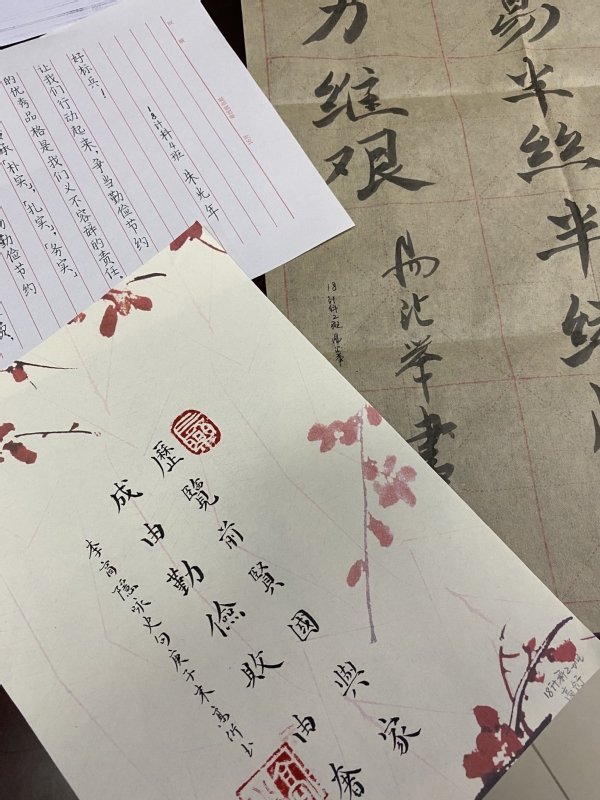 18计科4班 朱光年
好标兵！
让我们行动起来，争当勤俭节约
的优秀品格是我们义不容辞的责任。
承“朴实”、“扎实”、“务实”、
勤俭节约
易半丝半缕
力维艰
書
18计科2班
歷覽前賢國與家
成由勤儉敗由奢
李商隱咏史句庚子
18计科2班